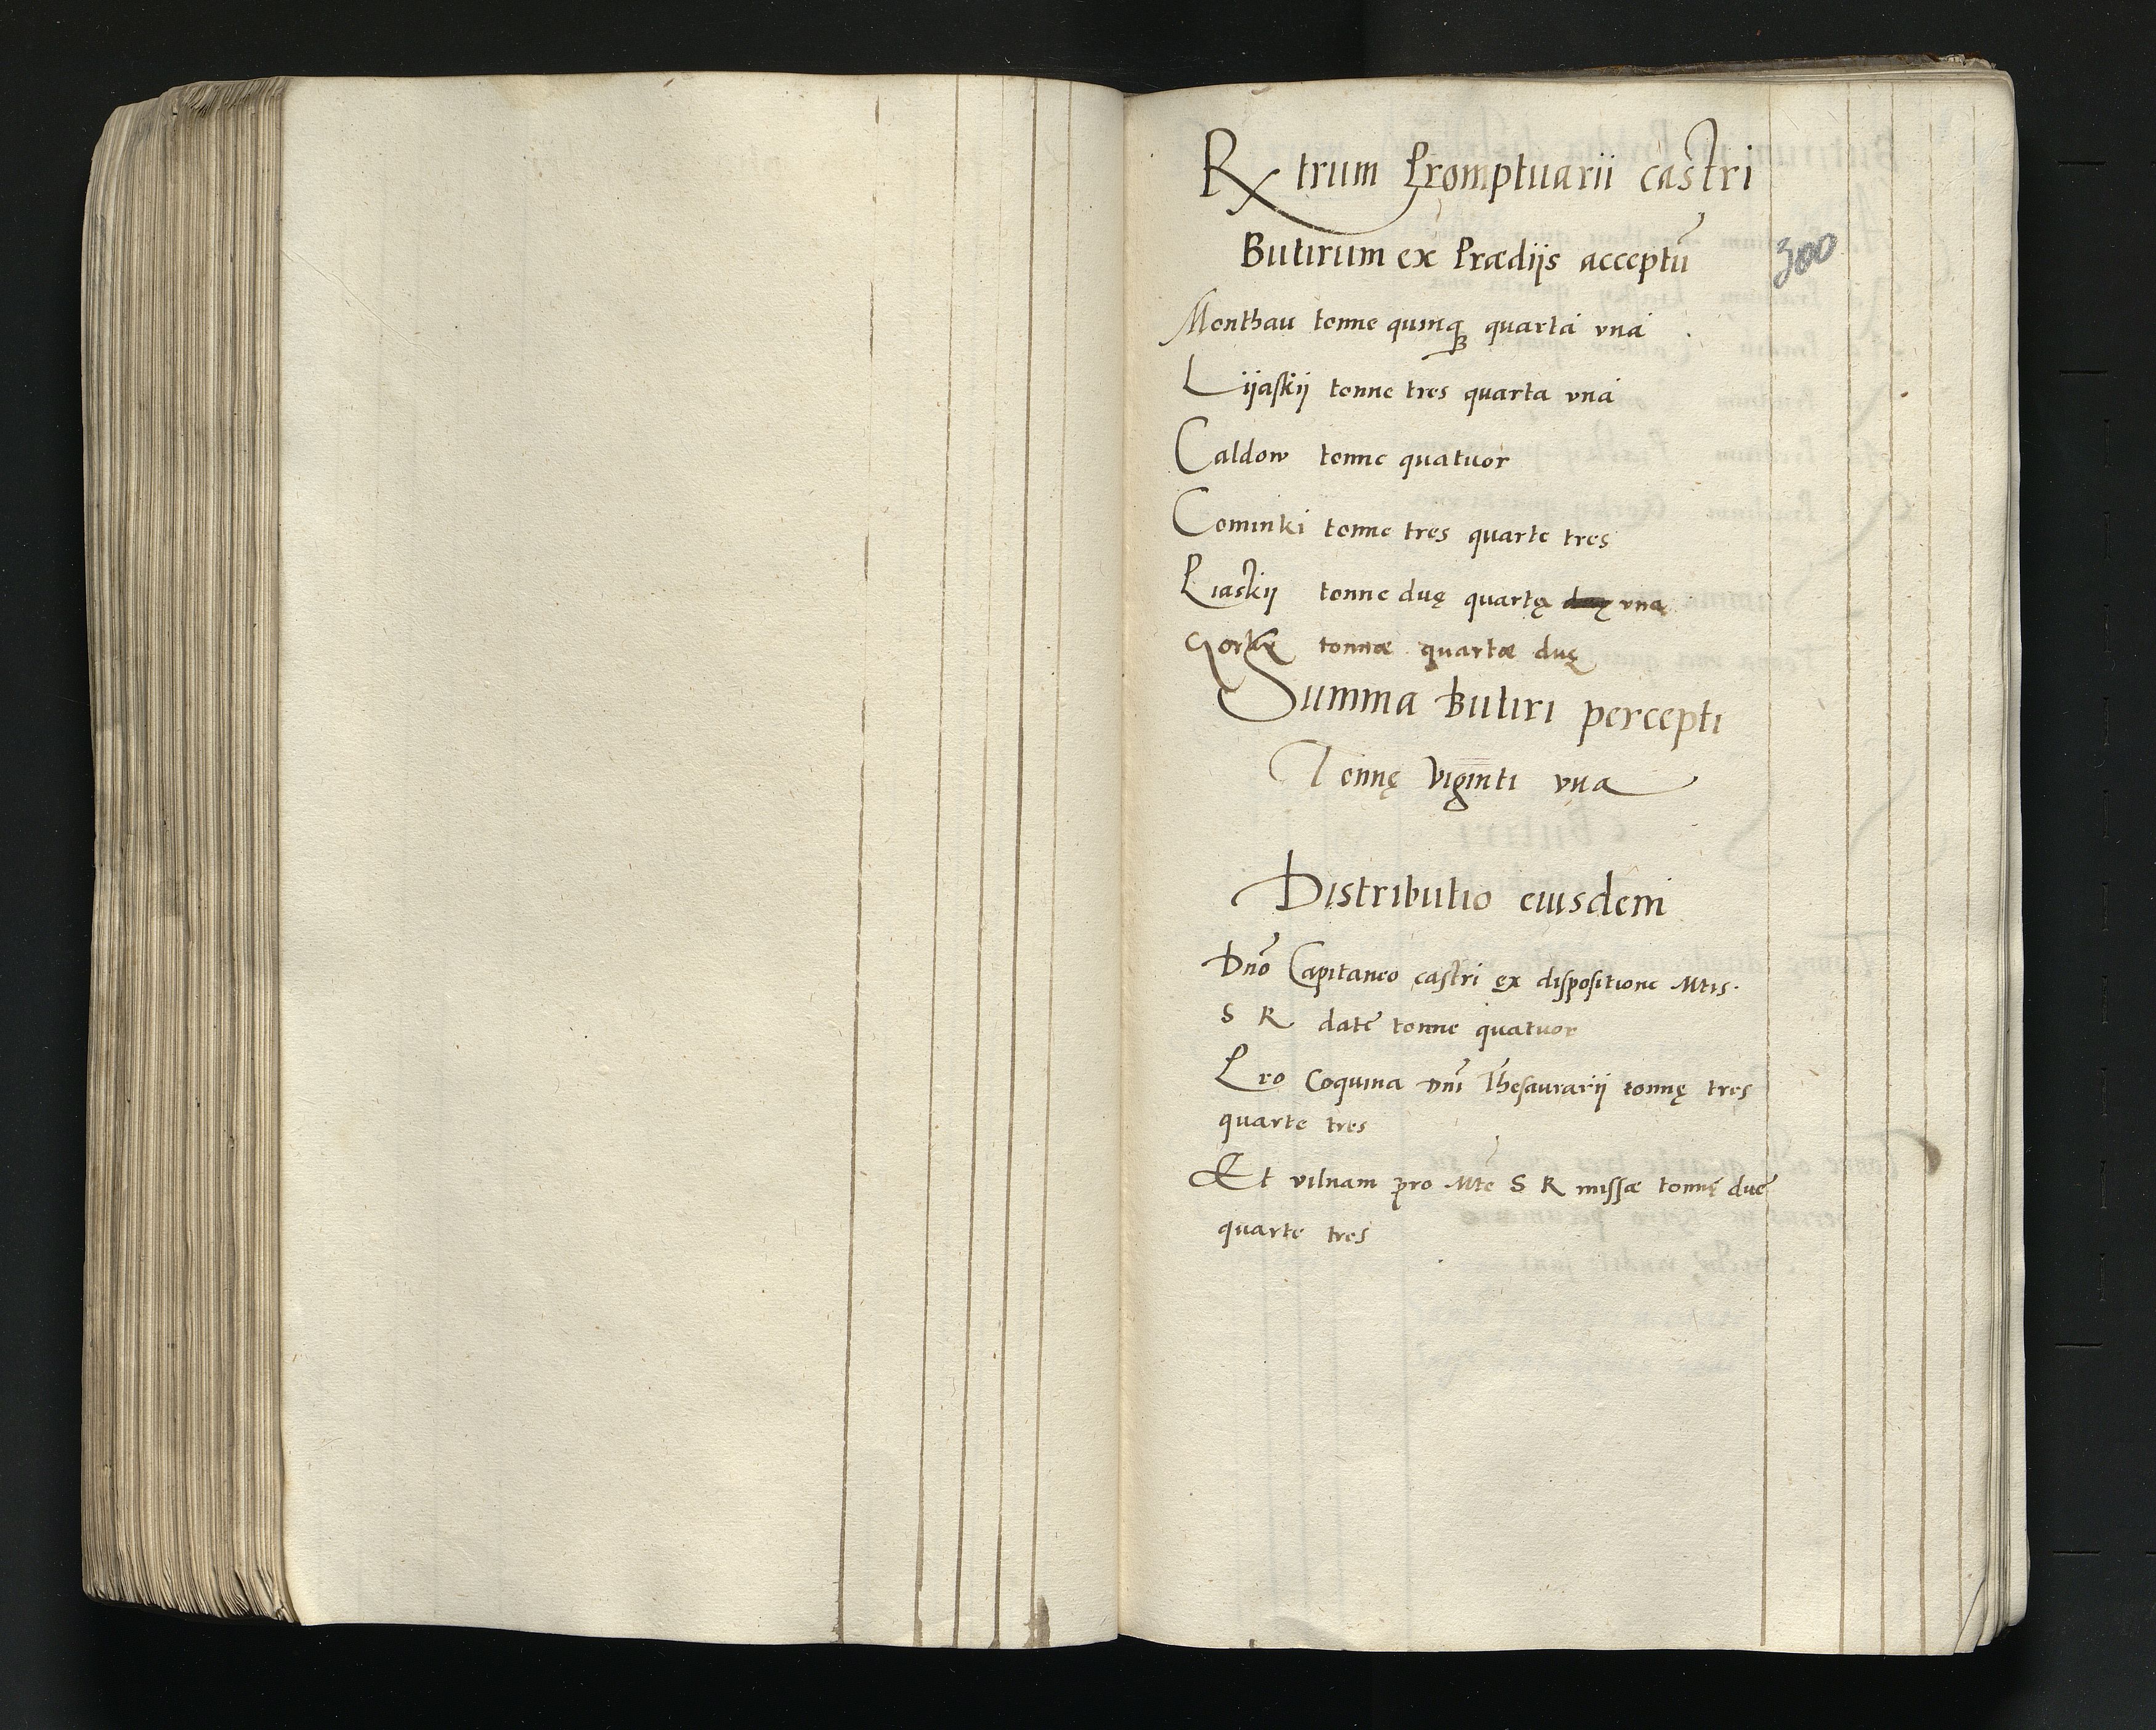 Rx trum Promptuarii castri
Butirum ex Prædijs acceptũ
300
Monthau tonne quinqꝫ quarta vna
Lijaskij tonne tres quarta vna
Caldow tonne quatuor
Cominki tonne tres quarte tres
Piaskij tonne duę quartę vna
Gorky tonnæ quartæ duę
Summa Butiri percepti
Tonnę viginti vna
Distributio eiusdem
Dño Capitaneo castri ex dispositione Mtis.
S R date tonne quatuor
Pro Coquina Dni Thesaurarij tonnę tres
quarte tres
Et vilnam pro Mte S R missæ tonnę due
quarte tres